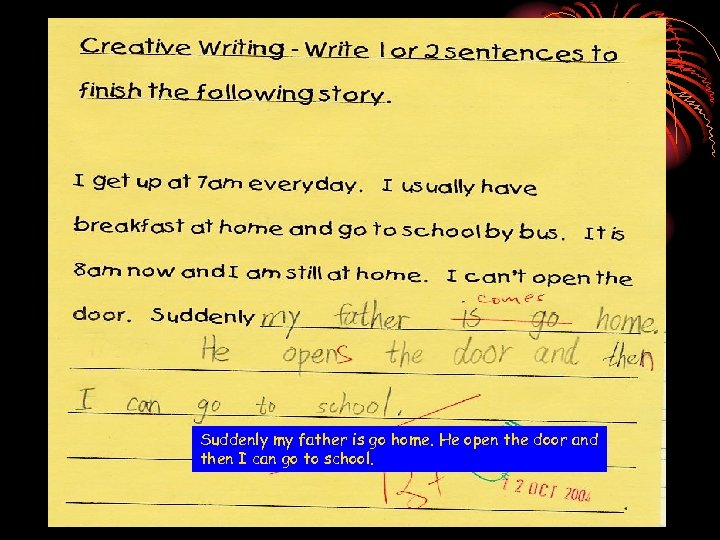 Creative Writing - Write 1 or 2 sentences to
finish the following story.
I get up at 7am everyday. I usually have
breakfast at home and go to school by bus. It is
8am now and I am still at home. I can't open the
comes
door. Suddenly my father is go home.
He opens the door and then
I can go to school.
Suddenly my father is go home. He open the door and
then I can go to school.
B+
12 OCT 2004